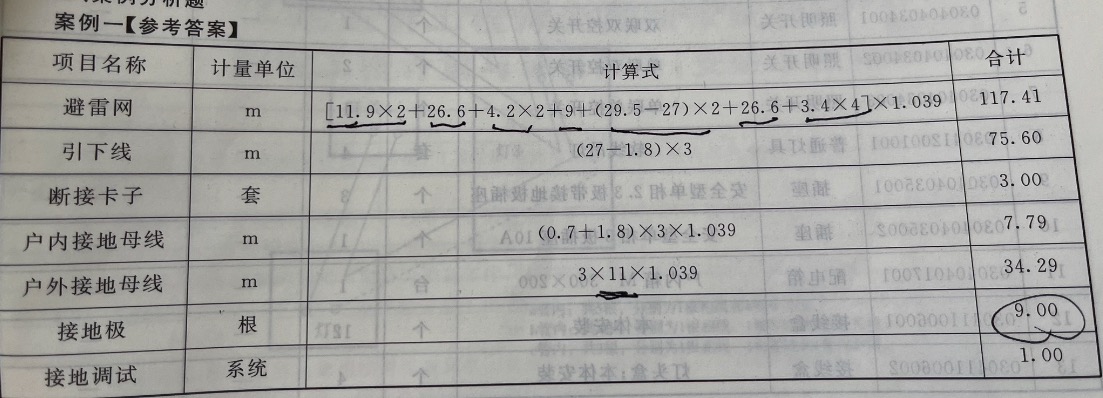 案例一【参考答案】
项目名称 计量单位 计算式 合计
避雷网 m [11.9×2+26.6+4.2×2+9+(29.5-27)×2+26.6+3.4×4]×1.039 117.41
引下线 m (27-1.8)×3 75.60
断接卡子 套 3.00
户内接地母线 m (0.7+1.8)×3×1.039 7.79
户外接地母线 m 3×11×1.039 34.29
接地极 根 9.00
接地调试 系统 1.00